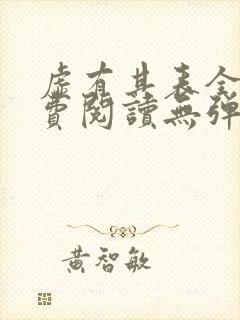 虛有其表全
費閱讀無彈
黃智敏